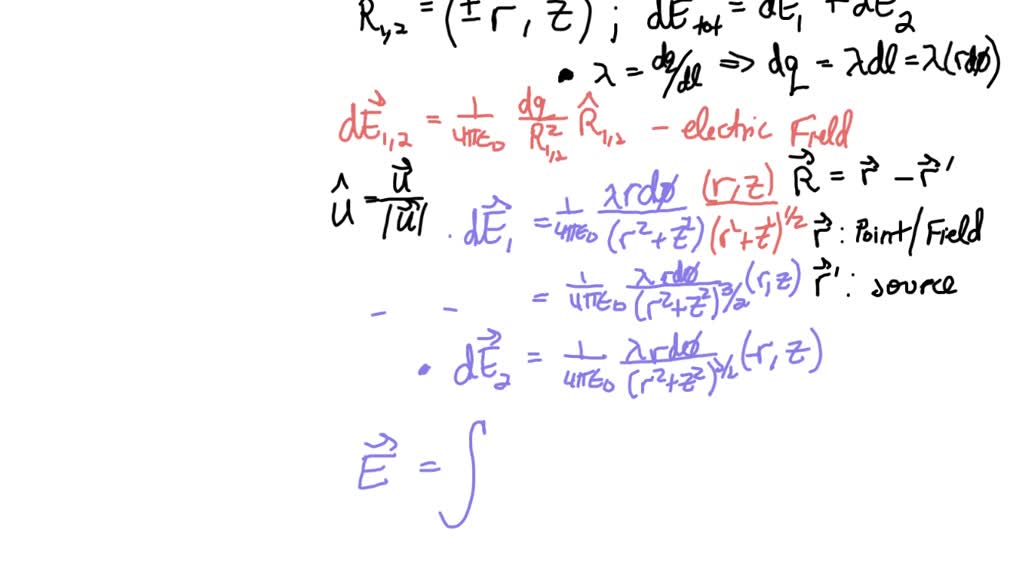 R₁,₂ = (± r, z) ; dE_tot = dE₁ + dE₂
• λ = dq/dl ⇒ dq = λdl = λ(rdφ)
dE⃗₁,₂ = 1/4πε₀ dq/R²₁,₂ R̂₁,₂ – electric Field
û = u⃗/|u⃗|
R⃗ = r⃗ – r⃗'
. dE⃗₁ = 1/4πε₀ λrdφ/(r²+z²) (r,z)/(r²+z²)^1/2
r⃗ : Point/Field
= 1/4πε₀ λrdφ/(r²+z²)^3/2 (r,z)
r⃗' : source
• dE⃗₂ = 1/4πε₀ λrdφ/(r²+z²)^3/2 (-r, z)
E⃗ = ∫